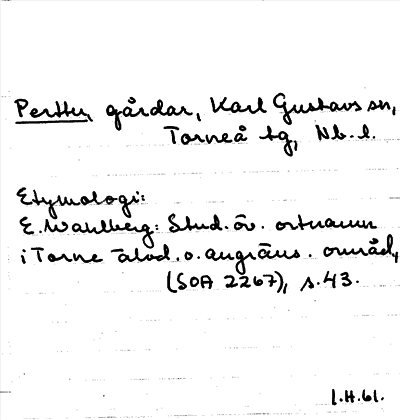 Perttu, gårdar, Karl Gustavs sn,
Torneå tg, Nb. l.
Etymologi:
E. Wahlberg: Stud. öv. ortnamn
i Torne älvd. o. angräns. område,
(SOA 2267), s. 43.
I.H.61.